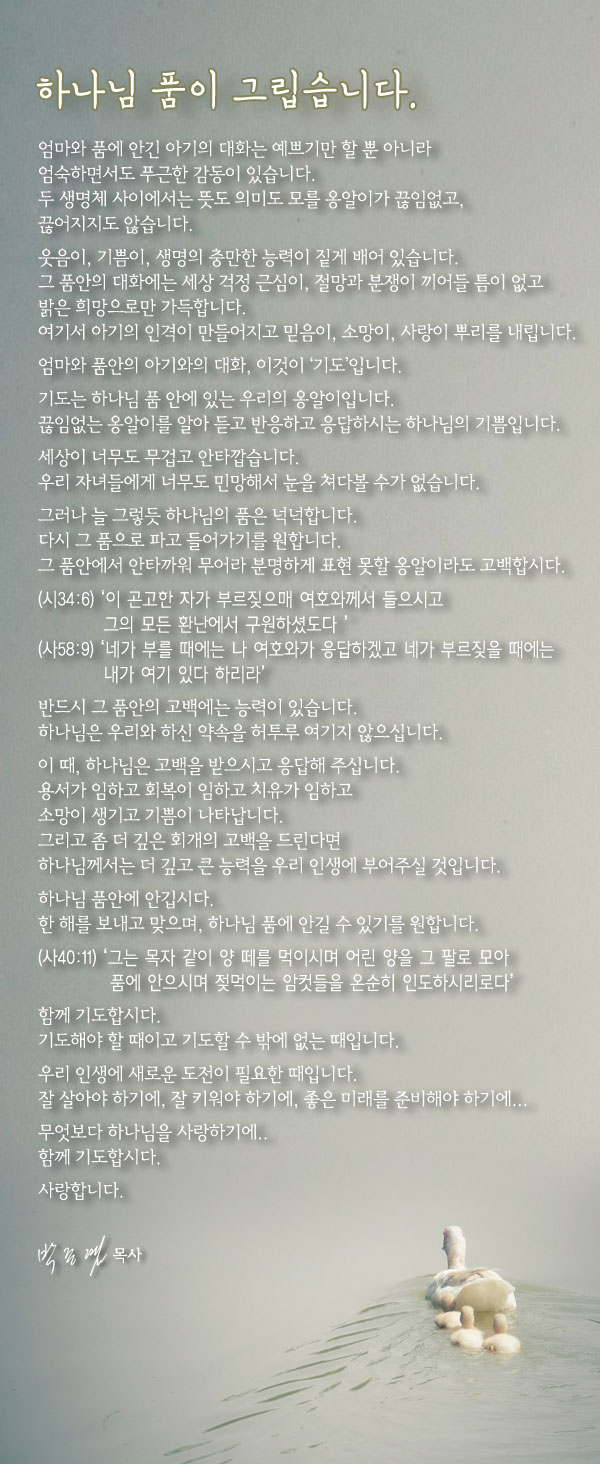 하나님 품이 그립습니다.
엄마와 품에 안긴 아기의 대화는 예쁘기만 할 뿐 아니라
엄숙하면서도 푸근한 감동이 있습니다.
두 생명체 사이에서는 뜻도 의미도 모를 옹알이가 끊임없고,
끊어지지도 않습니다.
웃음이, 기쁨이, 생명의 충만한 능력이 짙게 배어 있습니다.
그 품안의 대화에는 세상 걱정 근심이, 절망과 분쟁이 끼어들 틈이 없고
밝은 희망으로만 가득합니다.
여기서 아기의 인격이 만들어지고 믿음이, 소망이, 사랑이 뿌리를 내립니다.
엄마와 품안의 아기와의 대화, 이것이 ‘기도’입니다.
기도는 하나님 품 안에 있는 우리의 옹알이입니다.
끊임없는 옹알이를 알아 듣고 반응하고 응답하시는 하나님의 기쁨입니다.
세상이 너무도 무겁고 안타깝습니다.
우리 자녀들에게 너무도 민망해서 눈을 쳐다볼 수가 없습니다.
그러나 늘 그렇듯 하나님의 품은 넉넉합니다.
다시 그 품으로 파고 들어가기를 원합니다.
그 품안에서 안타까워 무어라 분명하게 표현 못할 옹알이라도 고백합시다.
(시34:6) ‘이 곤고한 자가 부르짖으매 여호와께서 들으시고
그의 모든 환난에서 구원하셨도다 ’
(사58:9) ‘네가 부를 때에는 나 여호와가 응답하겠고 네가 부르짖을 때에는
내가 여기 있다 하리라’
반드시 그 품안의 고백에는 능력이 있습니다.
하나님은 우리와 하신 약속을 허투루 여기지 않으십니다.
이 때, 하나님은 고백을 받으시고 응답해 주십니다.
용서가 임하고 회복이 임하고 치유가 임하고
소망이 생기고 기쁨이 나타납니다.
그리고 좀 더 깊은 회개의 고백을 드린다면
하나님께서는 더 깊고 큰 능력을 우리 인생에 부어주실 것입니다.
하나님 품안에 안깁시다.
한 해를 보내고 맞으며, 하나님 품에 안길 수 있기를 원합니다.
(사40:11) ‘그는 목자 같이 양 떼를 먹이시며 어린 양을 그 팔로 모아
품에 안으시며 젖먹이는 암컷들을 온순히 인도하시리로다’
함께 기도합시다.
기도해야 할 때이고 기도할 수 밖에 없는 때입니다.
우리 인생에 새로운 도전이 필요한 때입니다.
잘 살아야 하기에, 잘 키워야 하기에, 좋은 미래를 준비해야 하기에...
무엇보다 하나님을 사랑하기에..
함께 기도합시다.
사랑합니다.
목사